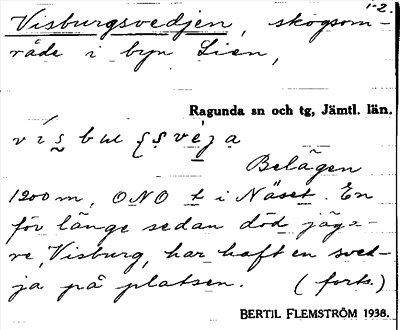 1-2.
Visburgsvedjen, skogsom-
råde i byn Lien,
Ragunda sn och tg, Jämtl. län.
Belägen
1200 m, ONO t i Näset. En
för länge sedan död jäga-
re, Visburg, har haft en sved-
ja på platsen. (forts.)
BERTIL FLEMSTRÖM 1938.